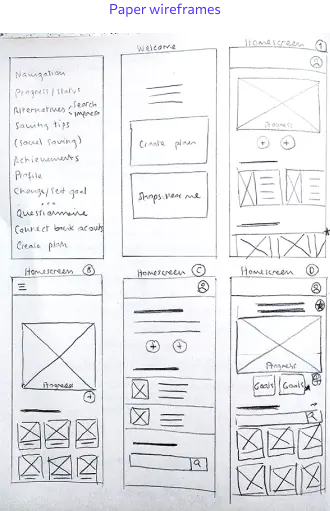 Paper wireframes
Navigation
Progress/status
Alternatives, search
impress
Saving tips
(social saving)
Achievements
Profile
Change/set goal
...
Questionnaire
Connect bank acouts
Create plan
Welcome
Create plan
Shops near me
Homescreen 1
Progress
+ +
Homescreen B
Progress
+
Homescreen C
+ +
Homescreen D
Progress
Goals Goals